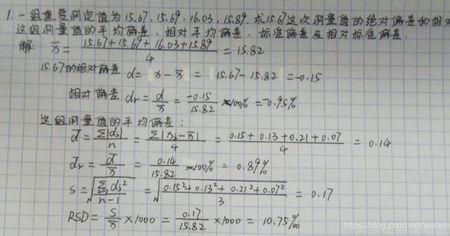 1. 一组重复测定值为15.67, 15.69, 16.03, 15.89. 求15.67这次测量值的绝对偏差和相
这组测量值的平均偏差、相对平均偏差、标准偏差及相对标准偏差.
解: x̄ = (15.67+15.67+16.03+15.89)/4 = 15.82
15.67的绝对偏差 d = x - x̄ = 15.67-15.82 = -0.15
相对偏差 dr = d/x̄ = -0.15/15.82 ×100% = -0.95%
这组测量值的平均偏差:
d̄ = Σ|di|/n = Σ|xi-x̄|/4 = (0.15+0.13+0.21+0.07)/4 = 0.14
d̄r = d̄/x̄ = 0.14/15.82 ×100% = 0.89%
s = √(Σdi²/(n-1)) = √((0.15²+0.13²+0.21²+0.07²)/3) = 0.17
RSD = s/x̄ ×1000 = 0.17/15.82 ×1000 = 10.75‰
https://blog.csdn.net/weixin